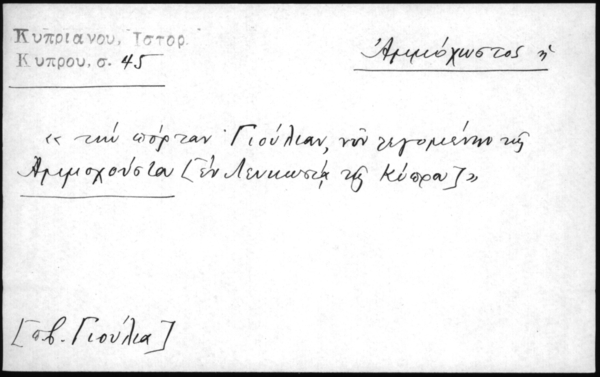 Κυπριανου, Ιστορ.
Κυπρου, σ. 45
Ἀμμόχωστος ἡ
« τὴν πόρταν Γιούλιαν, νῦν λεγομένην τῆς
Ἀμμοχούστου [ἐν Λευκωσίᾳ τῆς Κύπρου] »
[πβ. Γιούλια]